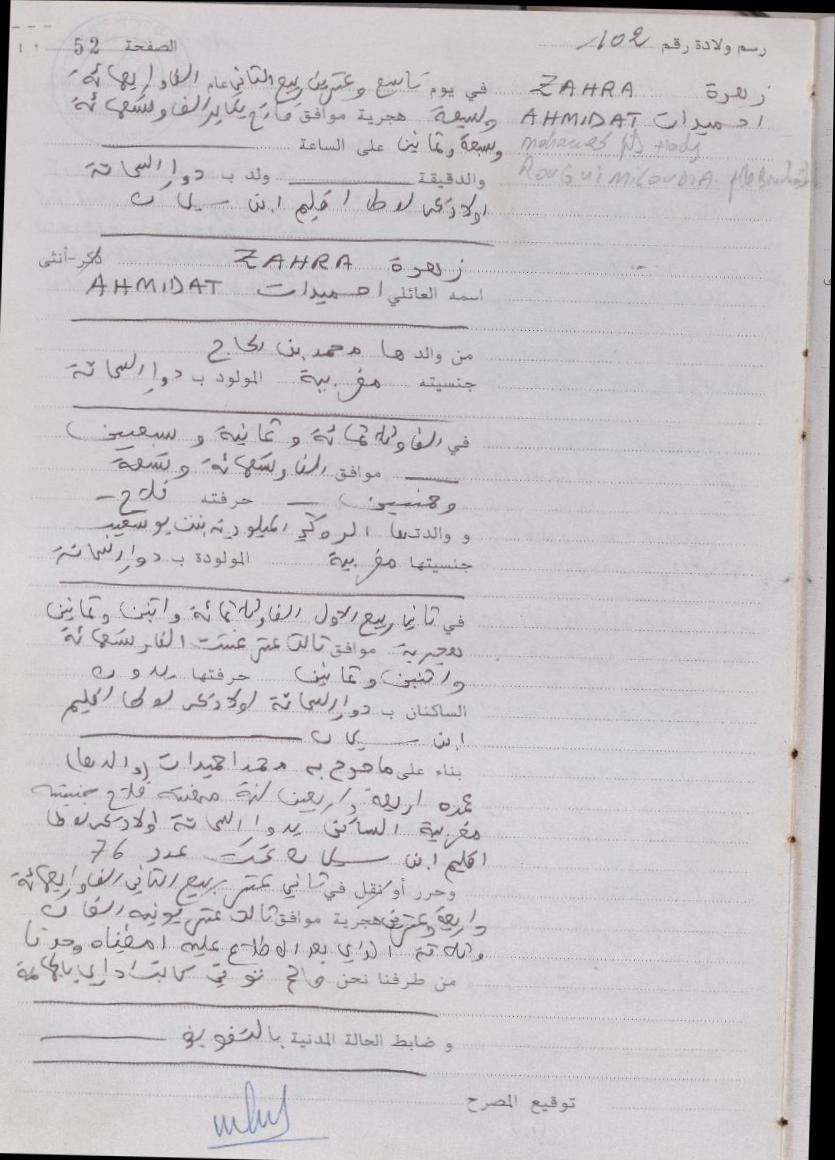 رسم ولادة رقم 102
الصفحة 52
زهرة ZAHRA
احميدات AHMIDAT
mohamed Hadj
ROUGUI MILOUDIA
في يوم تاسع وعشرين ربيع الثاني عام الف واربعمائة
وسبعة هجرية موافق فاتح يناير الف وتسعمائة
وسبعة وثمانين على الساعة
والدقيقة ولد ب دوار السحاتة
اولاد يحي لوطا اقليم ابن سليمان
زهرة ZAHRA ذكر-أنثى
اسمه العائلي احميدات AHMIDAT
من والدها محمد بن الحاج
جنسيته مغربية المولود ب دوار السحاتة
في الف وثلاثمائة وثمانية وسبعين
موافق الف وتسعمائة وتسعة
وخمسين حرفته فلاح
و والدتها الروكي الميلودية بنت بوشعيب
جنسيتها مغربية المولودة ب دوار السحاتة
في ربيع الاول الف وثلاثمائة واثنين وثمانين
هجرية موافق ثالث عشر غشت الف وتسعمائة
واثنين وثمانين حرفتها بدون
الساكنان ب دوار السحاتة اولاد يحي لوطا اقليم
ابن سليمان
بناء على ما صرح به محمد احميدات (والدها)
عمره اربعة واربعين سنة مهنته فلاح جنسيته
مغربية الساكن بدوار السحاتة اولاد يحي لوطا
اقليم ابن سليمان تحت عدد 76
وحرر أو نقل في ثاني عشر ربيع الثاني الف واربعمائة
واربعة وعشرين هجرية موافق ثالث عشر يونيه الفان
وثلاثة الذي بعد الاطلاع عليه امضيناه وحدنا
من طرفنا نحن صالح كاتب اداري بالجماعة
و ضابط الحالة المدنية بالتفويض
توقيع المصرح